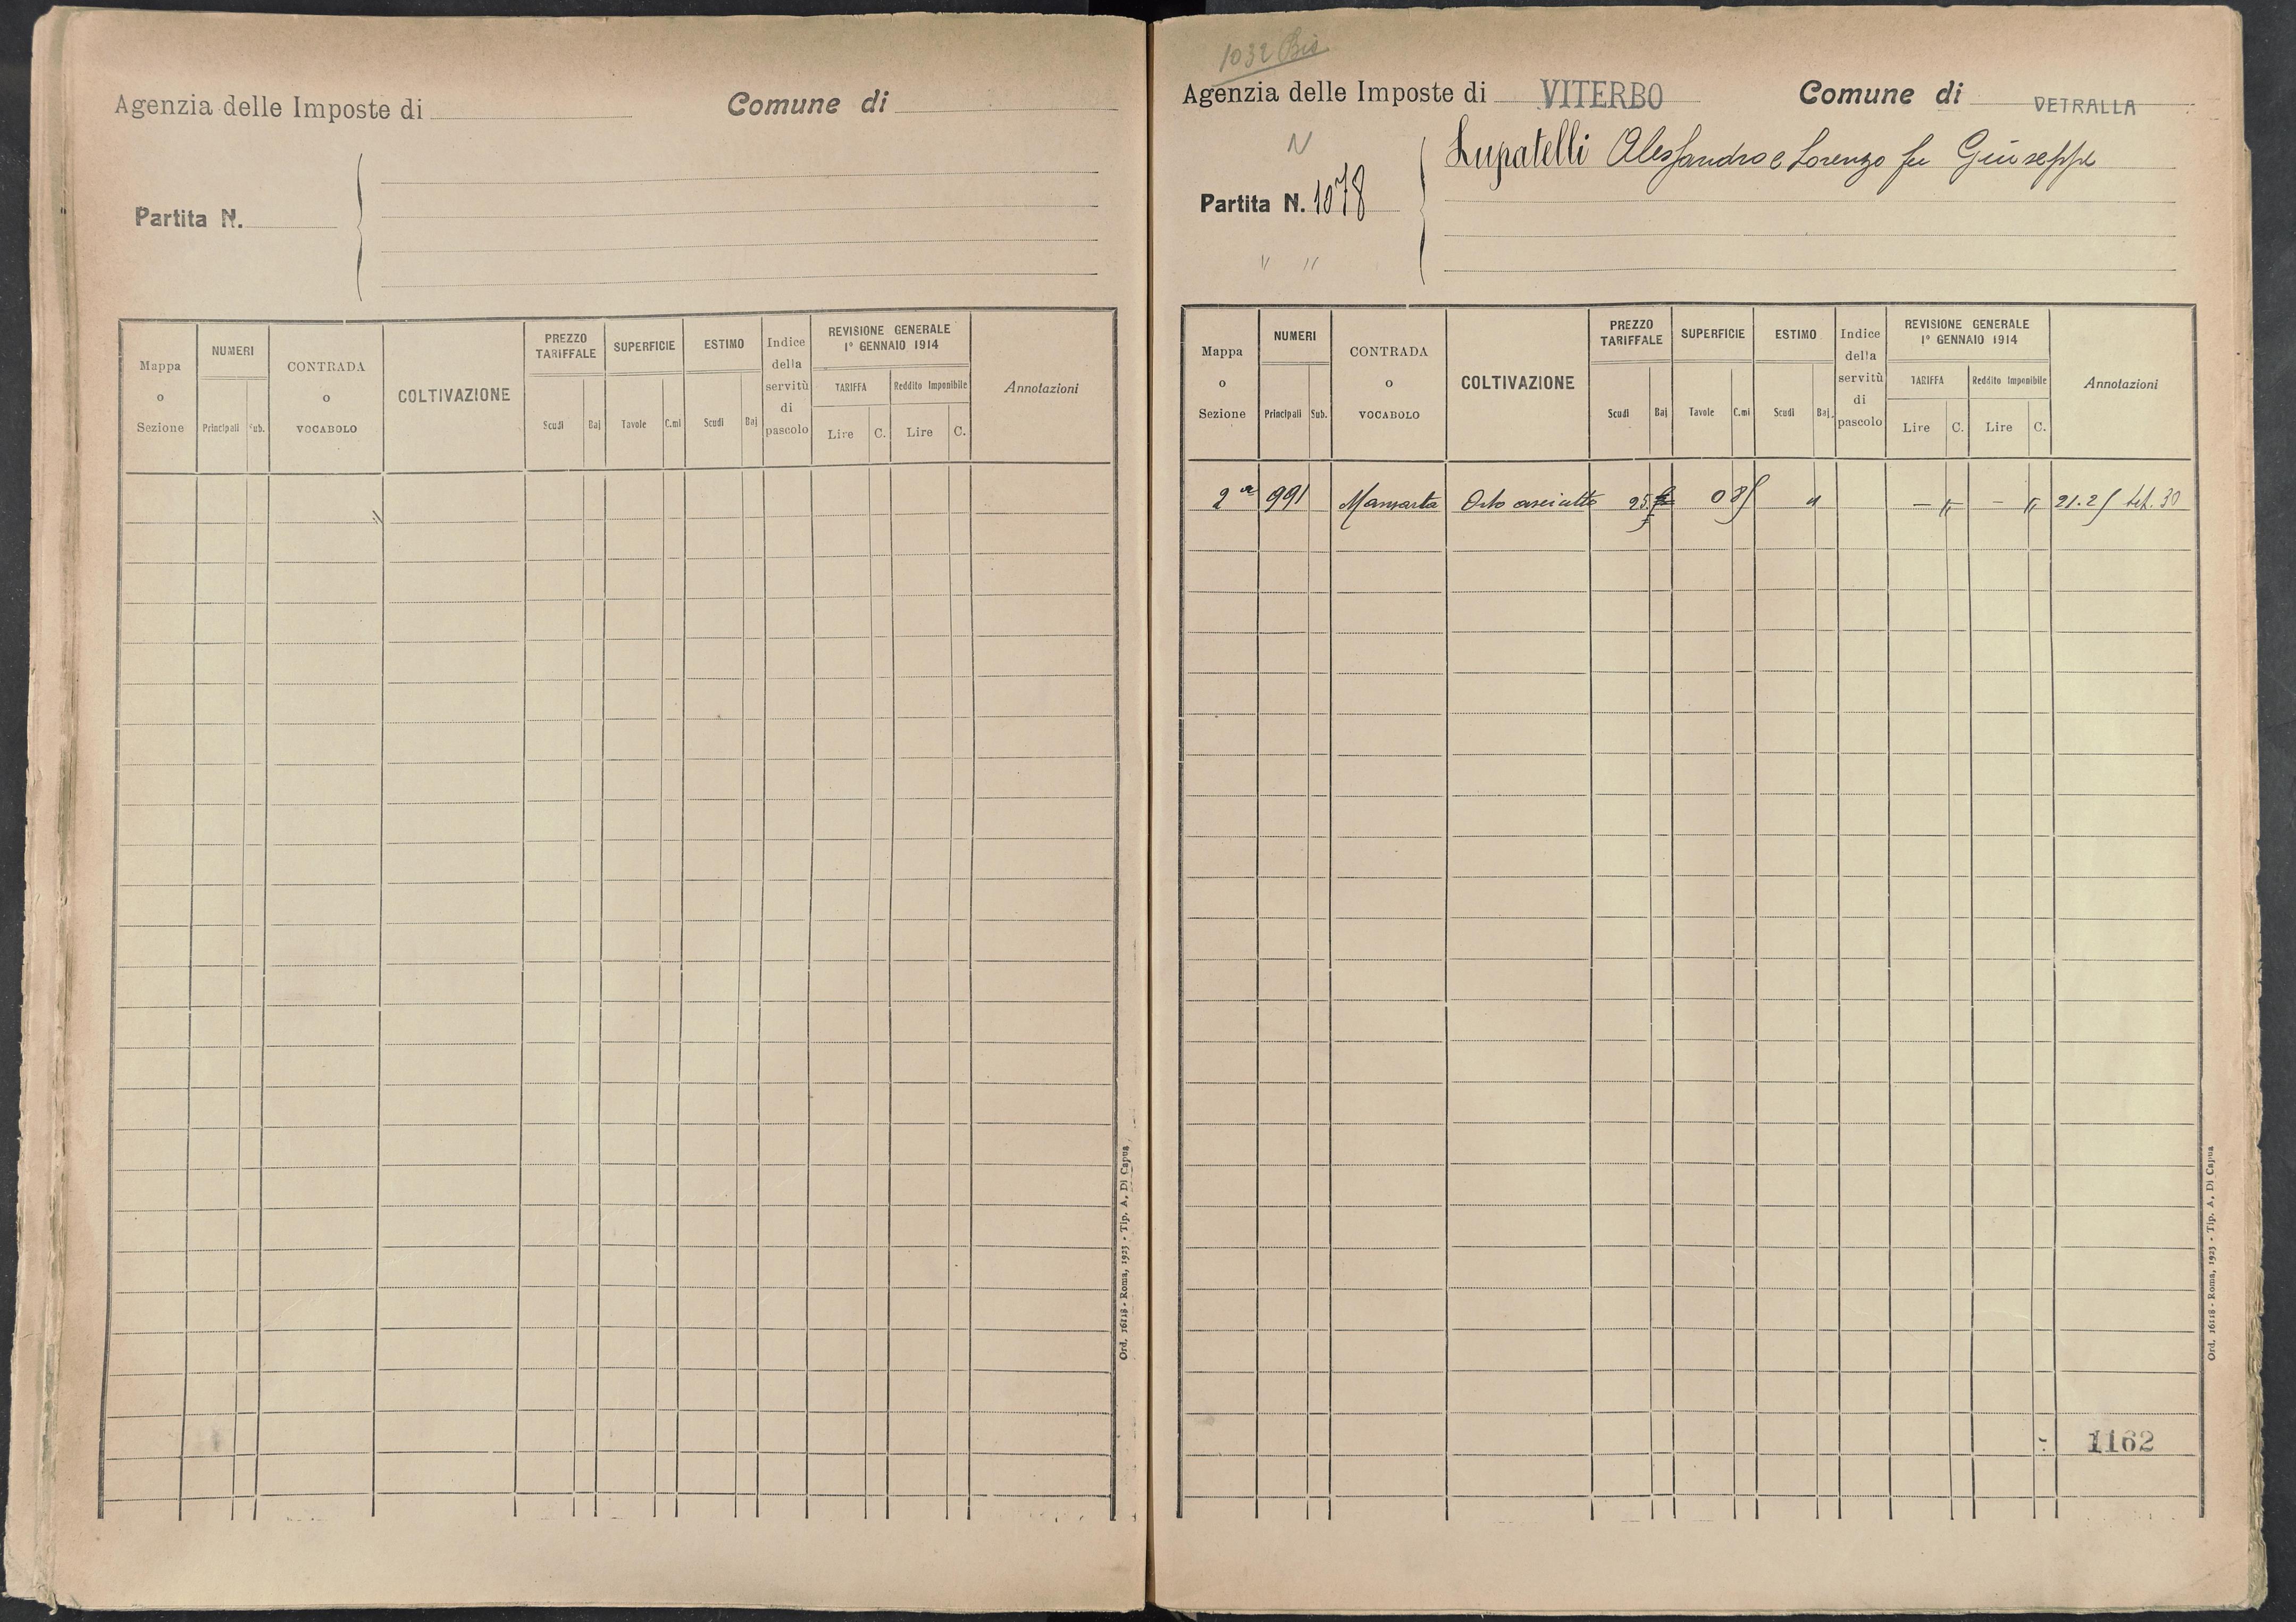 Agenzia delle Imposte di Comune di
Partita N.
Mappa o Sezione NUMERI Principali Sub. CONTRADA o VOCABOLO COLTIVAZIONE PREZZO TARIFFALE Scudi Baj SUPERFICIE Tavole C.mi ESTIMO Scudi Baj Indice della servitù di pascolo REVISIONE GENERALE 1° GENNAIO 1914 TARIFFA Lire C. Reddito Imponibile Lire C. Annotazioni
Ord. 16118 - Roma, 1923 - Tip. A. Di Capua
1032 Bis
Agenzia delle Imposte di VITERBO Comune di VETRALLA
N
Lupatelli Alessandro e Lorenzo fu Giuseppe
Partita N. 1078
" "
Mappa o Sezione NUMERI Principali Sub. CONTRADA o VOCABOLO COLTIVAZIONE PREZZO TARIFFALE Scudi Baj SUPERFICIE Tavole C.mi ESTIMO Scudi Baj. Indice della servitù di pascolo REVISIONE GENERALE 1° GENNAIO 1914 TARIFFA Lire C. Reddito Imponibile Lire C. Annotazioni
2ª 991 Orto asciutto 25 08 " - " - "
1162
Ord. 16118 - Roma, 1923 - Tip. A. Di Capua